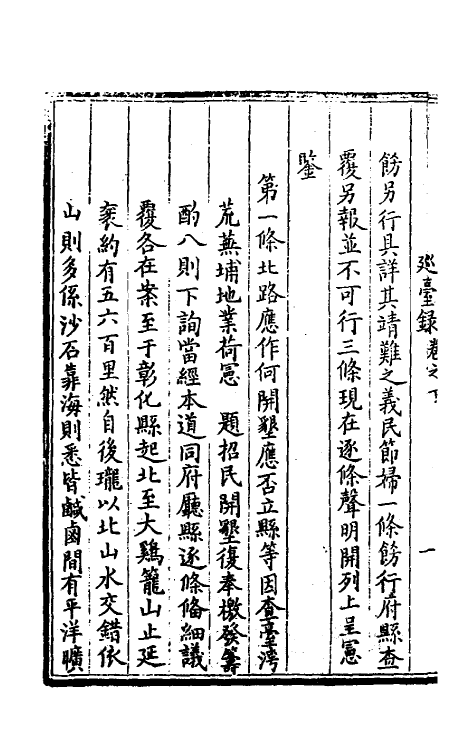 巡臺録卷之下 一
飭另行具詳其靖難之義民節婦一條飭行府縣查
覆另報並不可行三條現在逐條聲明開列上呈憲
鑒
第一條北路應作何開墾應否立縣等因查臺湾
荒蕪埔地業荷憲 題招民開墾復奉檄發籌
酌八則下詢當經本道同府廳縣逐條俻細議
覆各在案至于彰化縣起北至大鷄籠山止延
袤約有五六百里然自後壠以北山水交錯依
山則多係沙石靠海則悉皆鹹鹵間有平洋曠